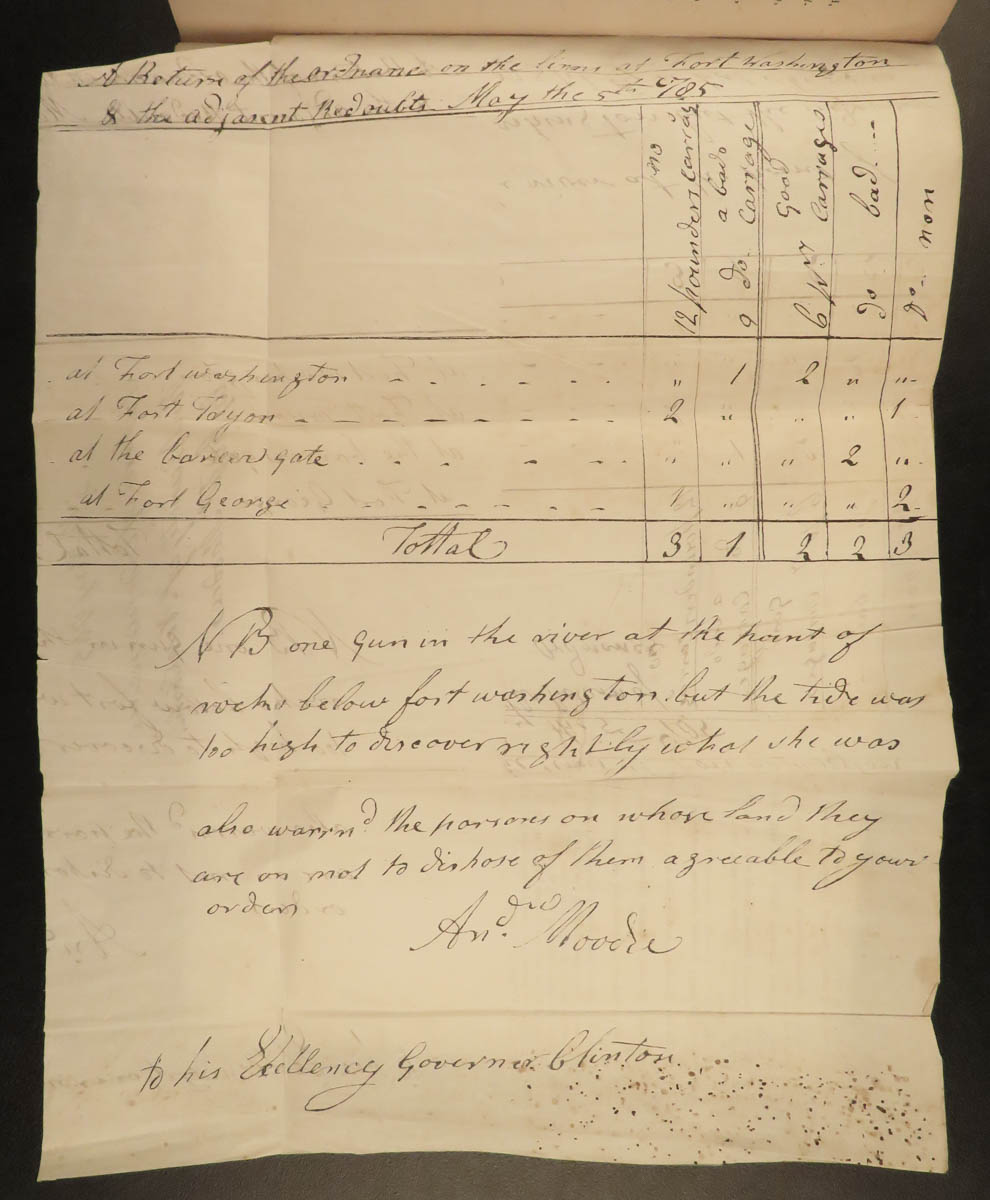 A Return of the ordnanc on the lines at Fort Washington
& the adjasent Redoubts May the 5th 1785
12 pounders no Carrag
9 do a bad Carrage
6 pdr good Carrages
do bad
do non
at Fort washington - - - - - - " 1 2 " "
at Fort Tryon - - - - - - - - 2 " " " 1
at the barrier gate - - - - - - " " " 2 "
at Fort George - - - - - - - 1 " " " 2
Tottal 3 1 2 2 3
N B one gun in the river at the point of
rocks below fort washington. but the tide was
too high to discover rightly what she was
also warrnd the parsons on whose land they
are on not to dispose of them agreeable to your
orders
Andw. Moodie
to his Exellency Governer Clinton